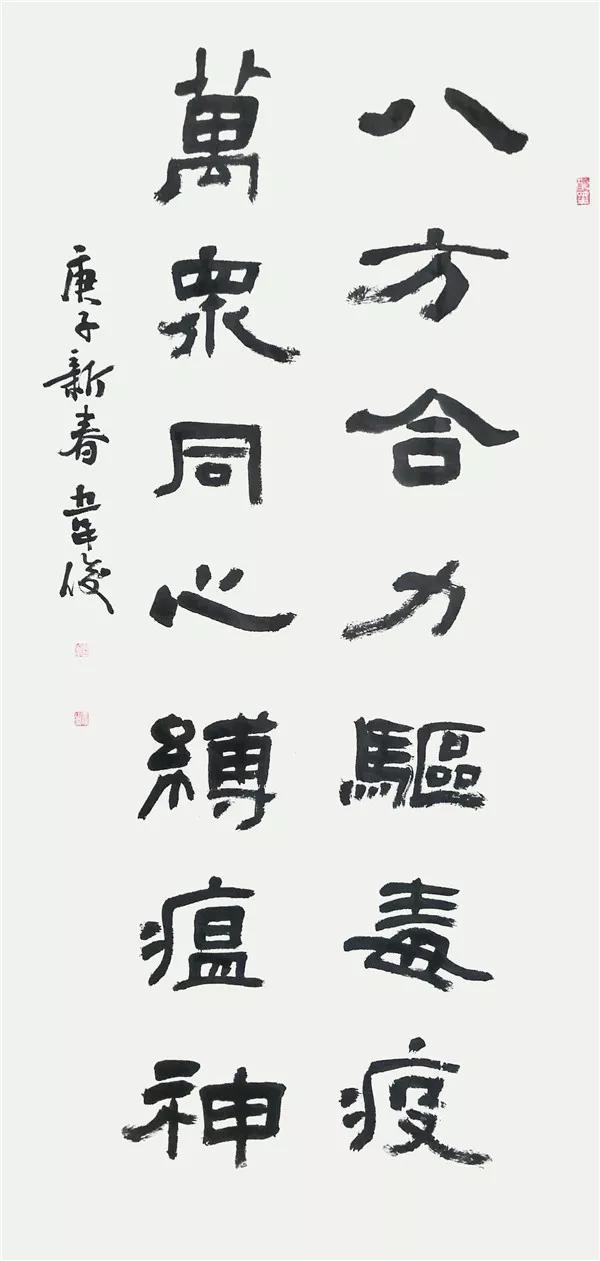 八方合力驅毒疫
萬眾同心縛瘟神
庚子新春